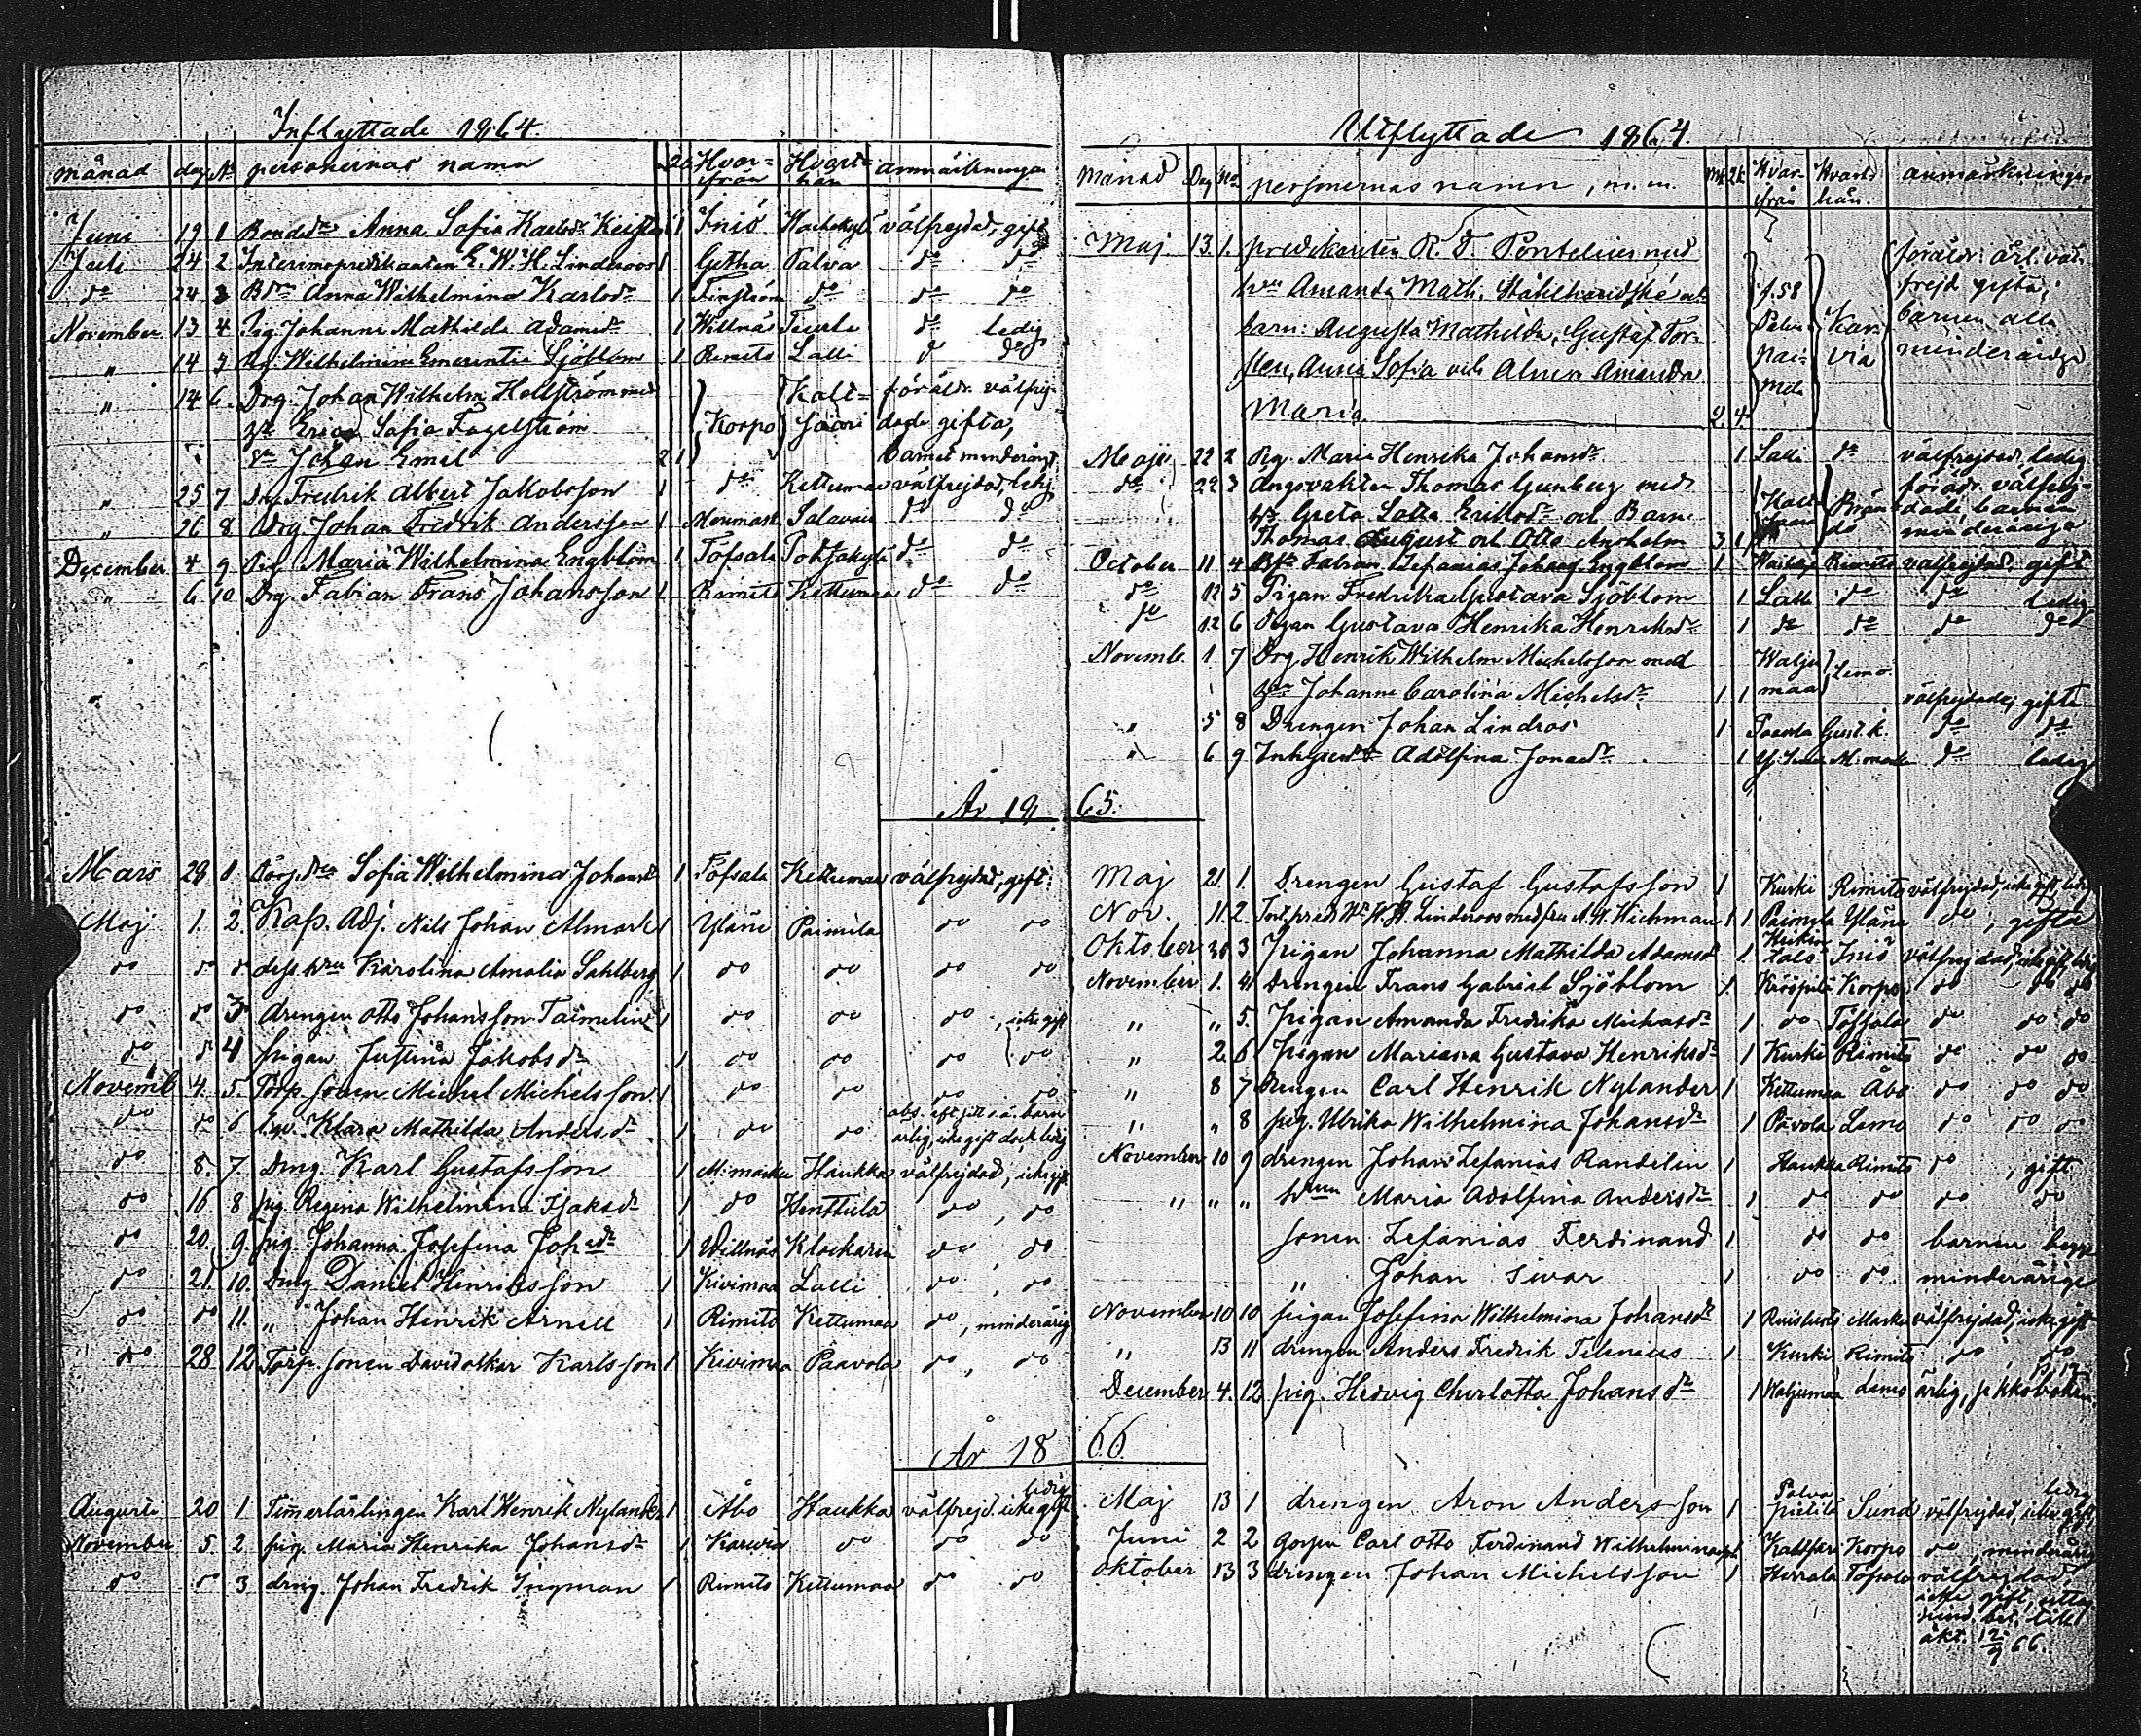 Inflyttade 1864.
månad dag No personernas namn Hvar=ifrån Hvart=hän anmärkningar
Juni 19 1 Anna Sofia Karlsdr 1 Iniö välfrejdad, gift
Juli 24 2 Interimspredikanten E. W. H. Linderoos 1 Getha Palva do do
do 24 3 Anna Wilhelmina Karlsdr 1 Finström do do do
November 13 4 Pig. Johanna Mathilda Adamsdr 1 Willnäs do ledig
" 14 5 Wilhelmina Emerentia Sjöblom 1 Rimito Lalli do do
" 14 6. Drg. Johan Wilhelm Hellström med Kalt= föräldr. välfrej-
Erica Sofia Fagelström Korpo saari dade gifta,
Johan Emil 2 1 barnet minderårigt
" 25 7 Drg Fredrik Albert Jakobsson 1 do Kettumaa välfrejdad, ledig
" 26 8 Drg Johan Fredrik Andersson 1 do do
December 4 9 Pig Maria Wilhelmina Engblom 1 Töfsala do do
" 6 10 Drg. Fabian Frans Johansson 1 Rimito Kettumaa do do
År 18
Mars 29 1 Sofia Wilhelmina Johansdr 1 Töfsala Kettumaa välfrejdad, gift.
Maj 1. 2. Kap. Adj. Nils Johan Almark 1 Yläne Paimela do do
do do do dess hru Karolina Amalia Sahlberg 1 do do do do
do do 3 drengen Otto Johansson Taimelin 1 do do do, icke gift
do do 4 pigan Justina Jakobsdr 1 do do do do
Novemb 4. 5. Torp. sonen Michel Michelsson 1 do do do do
do do 6 Klara Mathilda Andersdr 1 do do ärlig, icke gift dock ledig
do 8. 7. Drng. Karl Gustafsson 1 M:maske Haukka välfrejdad, icke gift
do 16. 8 pig. Regina Wilhelmina Isaksdr 1 do Henttula do, do
do 20. 9. pig. Johanna Josefina Johsdr 1 Willnäs Klockaren do, do
do 21. 10. Drng Daniel Henriksson 1 Kivimaa Lalli do, do
do do 11. " Johan Henrik Arnell 1 Rimito Kettumaa do, minderårig
do 28 12 Torp. sonen David Oskar Karlsson 1. Kivimaa Paavola do, do
År 18
Augusti 20 1 Timerlärlingen Karl Henrik Nylander 1 Åbo Haukka välfrejd. icke gift ledig
November 5. 2. pig. Maria Henrika Johansdr 1 Karvia do do do
do do 3 drng. Johan Fredrik Ingman 1 Rimito Kettumaa do do
Utflyttade 1864.
Månad Dag No personernas namn, m.m. Mk Qk Hvar-ifrån Hvart-hän. anmärkningar
Maj. 13. 1. predikanten R. T. Pontelius med föräldr. ärl. väl-
hru Amanda Math. f.58 frejd gifta,
barn: Augusta Mathilda, Gustaf Tor- Palva Kar- barnen alla
sten, Anna Sofia och Alma Amanda pai- via minderåriga
Maria. 2. 4. mela
Maji 22 2 Pig. Maria Henrika Johansdr 1 Lalli do välfrejdad, ledig
do 22 3 Ängsvakten Thomas med föräldr. välfrej-
Greta Lotta Eriksdr och Barn Brän- dade, barnen
Thomas August och Otto 3 1 dö minderåriga
October 11 4 Fabian Zefanias Engblom 1 Rimito välfrejdad, gift
do 12 5 Pigan Fredrika Gustava Sjöblom 1 Lalli do do ledig
do 12 6 Pigan Gustava Henrika Henriksdr 1 do do do do
Novemb. 1 7 Drg Henrik Wilhelm Michelsson med Walju Lemo
Johanna Carolina Michelsdr 1 1 maa välfrejdade, gifte
" 5 8 Drengen Johan Lindroos 1 Gust.k. do do
" 6 9 Adolfina Jonasdr 1 M:maske do ledig
65.
Maj 21. 1. Drengen Gustaf Gustafsson 1 Kurki Rimito välfrejdad, icke gift, ledig
Nov. 11. 2. Linderoos med fru A. W. Wichman 1 1 Paimela Yläne do, gifta
Oktober 30 3 Pigan Johanna Mathilda Adamsdr 1. Iniö välfrejdad, icke gift, ledig
November 1. 4 Drengen Frans Gabriel Sjöblom 1. Korpo do do do
" " 5. Pigan Amanda Fredrika Michelsdr 1 do Töfsala do do do
" 2. 6 pigan Mariana Gustava Henriksdr 1 Kurki Rimito do do do
" 8 7 Drengen Carl Henrik Nylander 1 Kettumaa Åbo do do do
" " 8 pig. Ulrika Wilhelmina Johansdr 1 Pavola Lemo do do do
November 10 9 drengen Johan Zefanias Randelin 1 Haukka Rimito do, gift
" " " hrun Maria Adolfina Andersdr 1 do do do do
sonen Zefanias Ferdinand 1 do do barnen begge
" Johan Iwar 1 do do minderårige
November 10 10 pigan Josefina Wilhelmina Johansdr 1 Maske välfrejdad, icke gift
" 13 11 drengen Anders Fredrik Telenius 1 Kurki Rimito do, do
December 4. 12 pig. Hedvig Charlotta Johansdr 1 Waljumaa Lemo ärlig, se kkoboken
66.
Maj 13 1 drengen Aron Andersson 1 Palva Sund välfrejdad, icke gift, ledig
Juni 2 2 gossen Carl Otto Ferdinand 1 Korpo do, minderårig
Oktober 13 3 drengen Johan Michelsson 1 Herrala Töfsala välfrejdad
icke gift,
12/9 66.